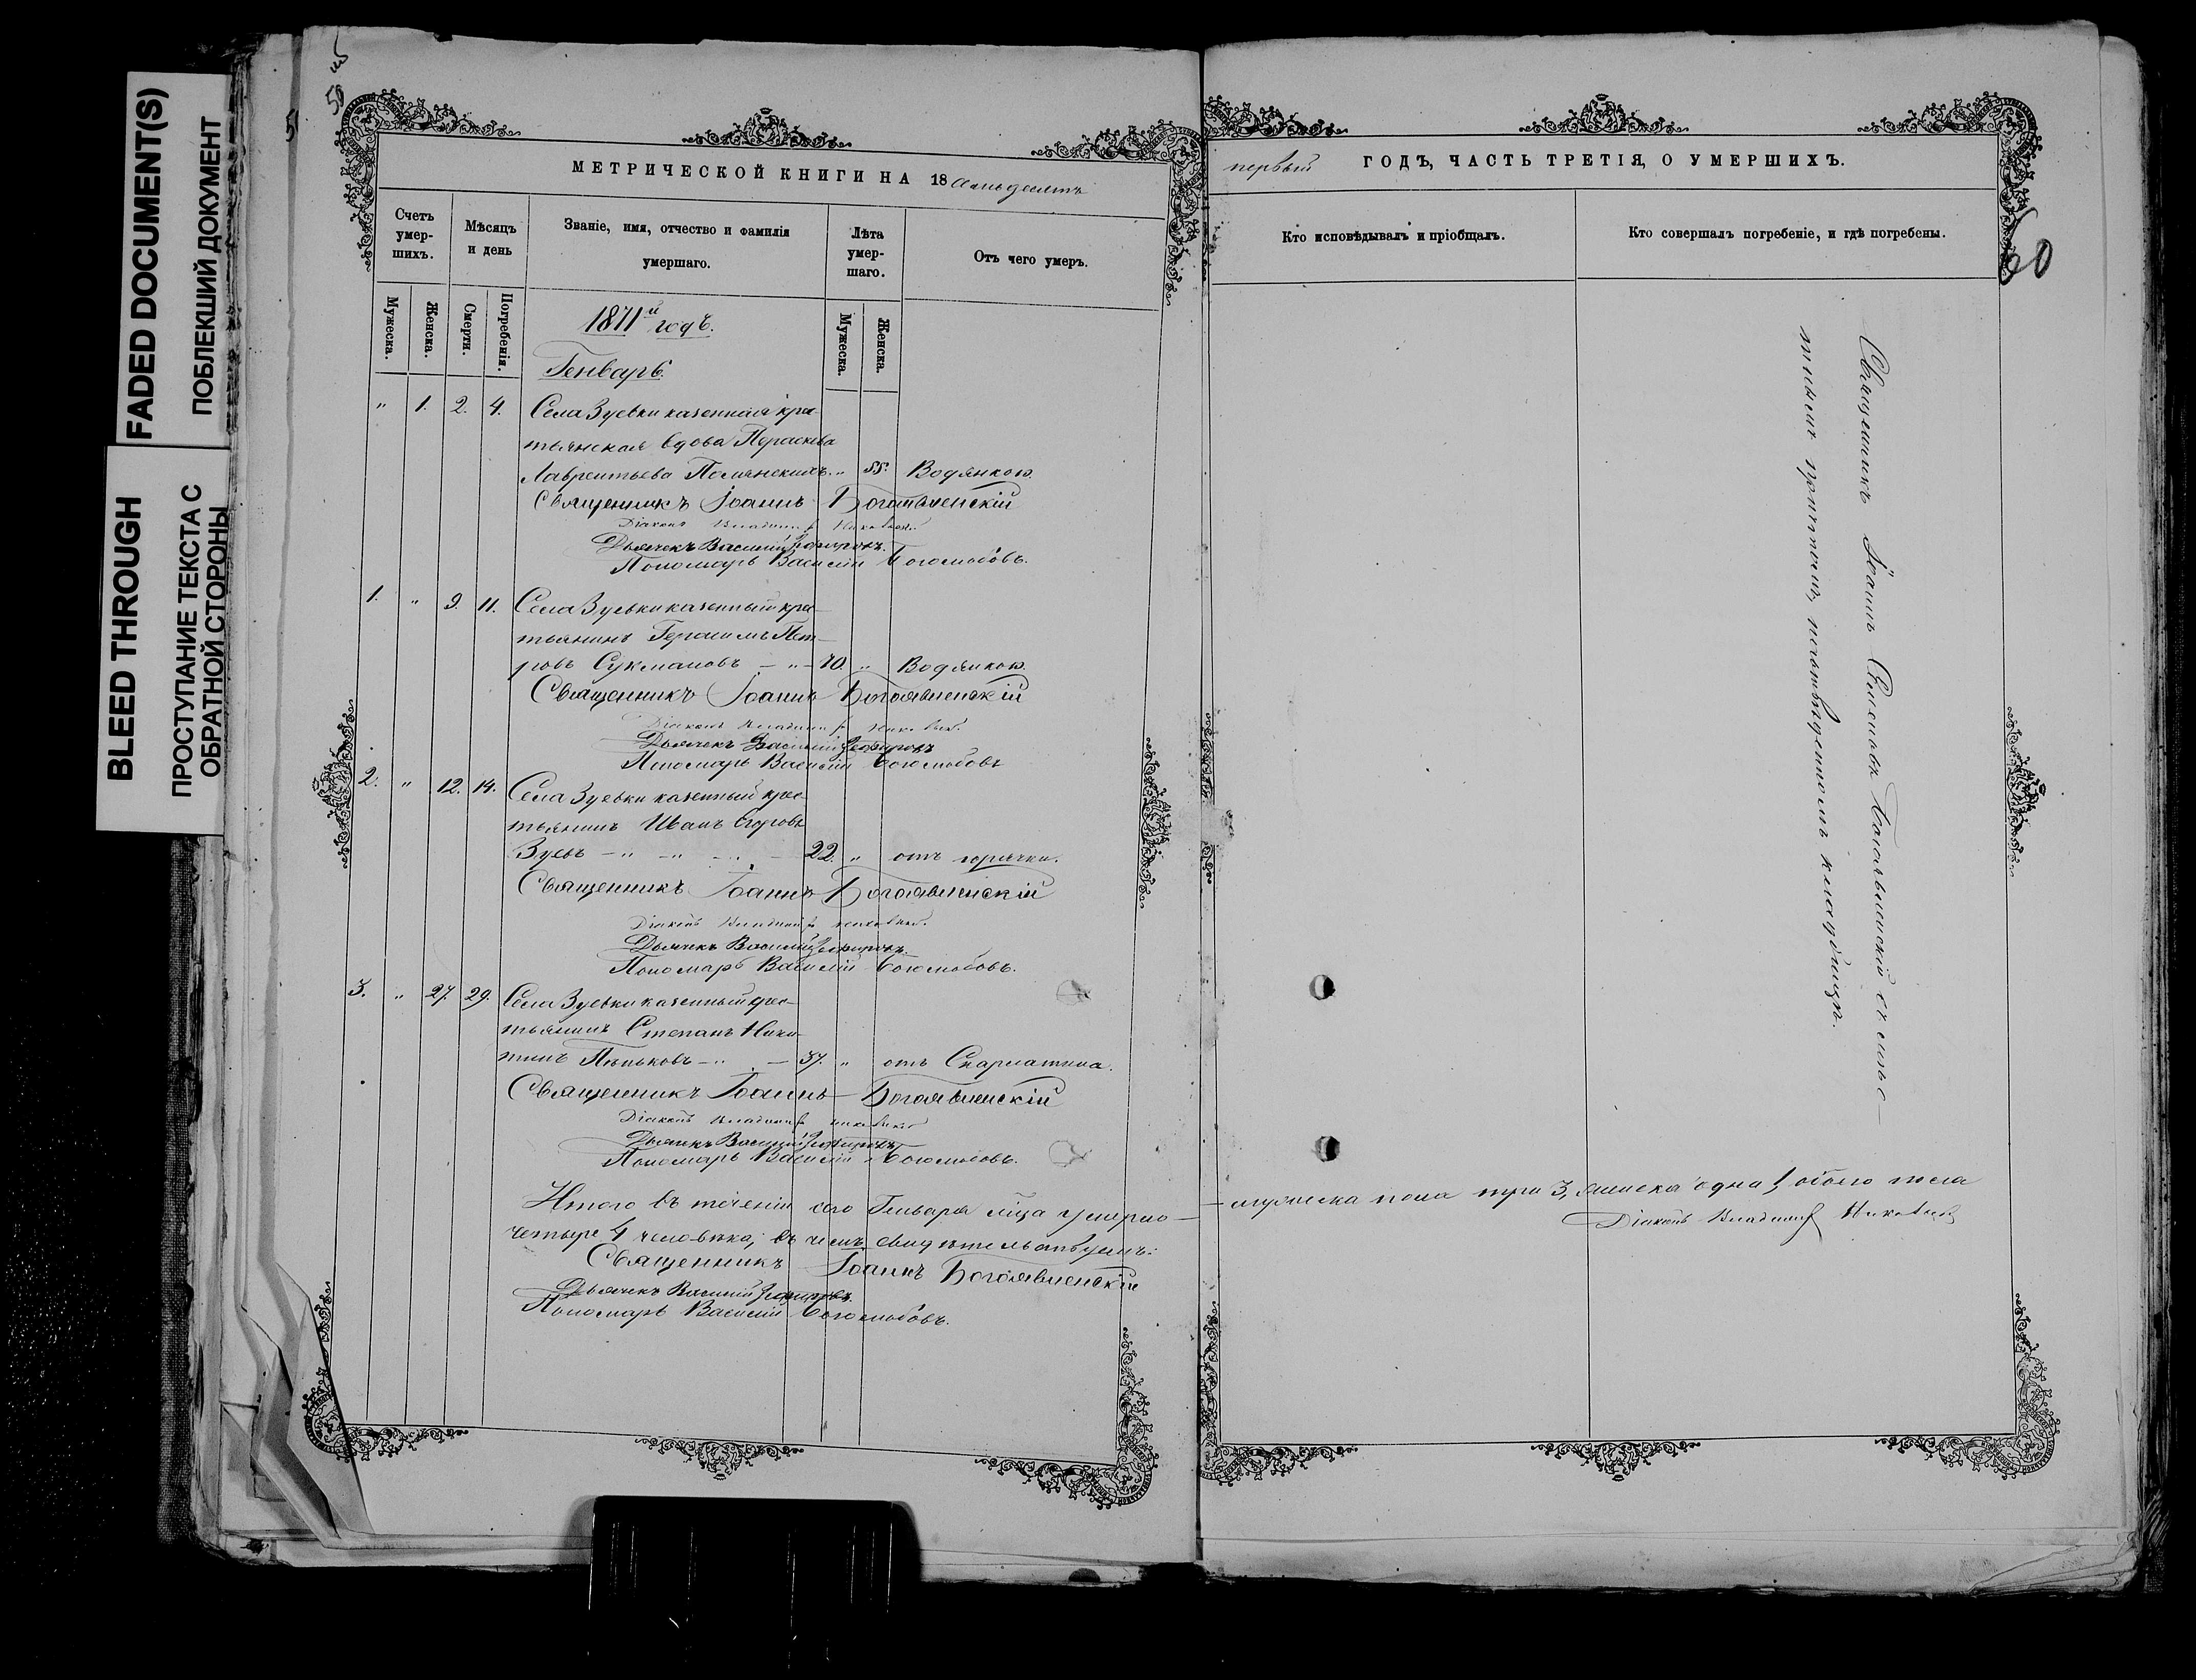 FADED DOCUMENT(S)
ПОБЛЕКШИЙ ДОКУМЕНТ
BLEED THROUGH
ПРОСТУПАНИЕ ТЕКСТА С
ОБРАТНОЙ СТОРОНЫ
50
МЕТРИЧЕСКОЙ КНИГИ НА 18 семьдесятъ
Счетъ умер-шихъ.
Мѣсяцъ и день
Званіе, имя, отчество и фамилія умершаго.
Лѣта умер-шаго.
Отъ чего умеръ.
Мужеска.
Женска.
Смерти.
Погребенія.
Мужеска.
Женска.
1871й годъ.
Генварь
" 1. 2. 4. Села Зуевки казенная крес-
тьянская вдова Параскева
Лаврентьева " 55. Водянкою.
Священникъ Іоаннъ Богоявленскій
Діаконъ Владиміръ
Дьячекъ Василій
Пономарь Василій Боголюбовъ.
1. " 9. 11. Села Зуевки казенный крес-
тьянинъ Герасимъ Пет-
ровъ Сукмановъ — " — 70. " Водянкою.
Священникъ Іоаннъ Богоявленскій
Діаконъ Владиміръ
Дьячекъ Василій
Пономарь Василій Боголюбовъ
2. " 12. 14. Села Зуевки казенный крес-
тьянинъ Иванъ Егоровъ
Зуевъ — " — " — " — 22. " отъ горячки.
Священникъ Іоаннъ Богоявленскій
Діаконъ Владиміръ
Дьячекъ Василій
Пономарь Василій Боголюбовъ.
3. " 27. 29. Села Зуевки казенный крес-
тьянинъ Степанъ Ники-
тинъ Пеньковъ — " — 37. " отъ Скарлатина.
Священникъ Іоаннъ Богоявленскій
Діаконъ Владиміръ
Дьячекъ Василій
Пономарь Василій Боголюбовъ.
Итого въ теченіи сего Генваря мѣсяца умерло —
четыре 4 человѣка; въ чемъ свидѣтельствуемъ:
Священникъ Іоаннъ Богоявленскій
Дьячекъ Василій
Пономарь Василій Боголюбовъ.
первый ГОДЪ, ЧАСТЬ ТРЕТІЯ, О УМЕРШИХЪ.
Кто исповѣдывалъ и пріобщалъ.
Кто совершалъ погребеніе, и гдѣ погребены.
60
Священникъ Іоаннъ Богоявленскій съ симъ-
причтомъ, на отведенномъ кладбищѣ.
— мужеска пола три 3, женска одна 1, обоего пола
Діаконъ Владиміръ